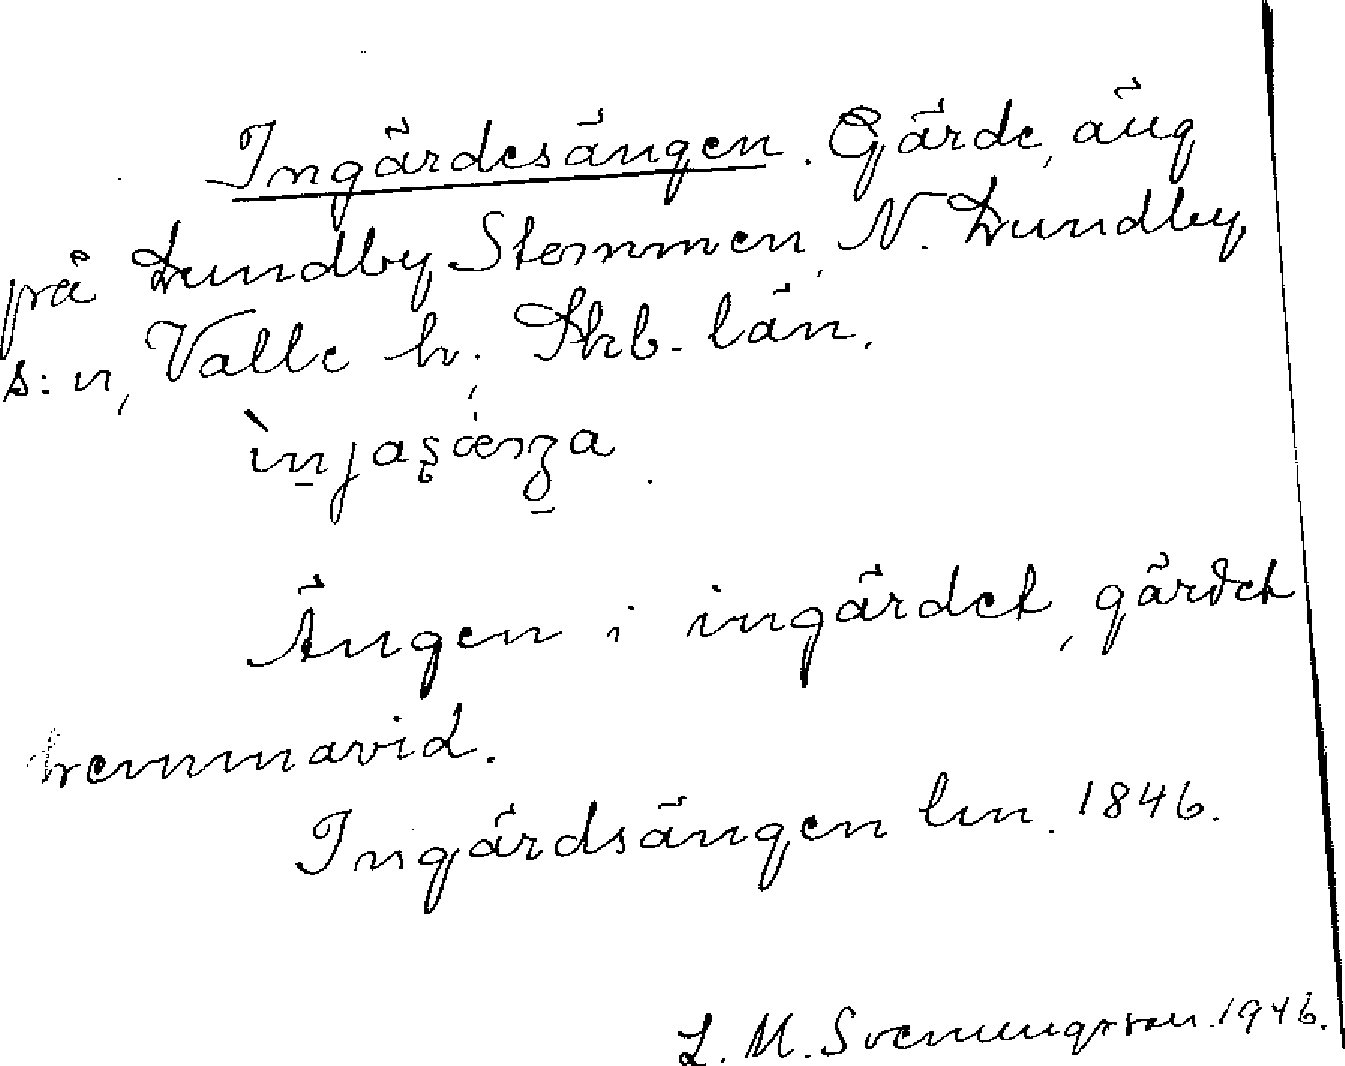 Ingärdesängen. Gärde, äng
på Lundby Stommen, N. Lundby
s:n, Valle hd; Skb. län.
Ängen i ingärdet, gärdet
hemmavid.
Ingärdsängen lm. 1846.
L. M. Svenungsson. 1946.